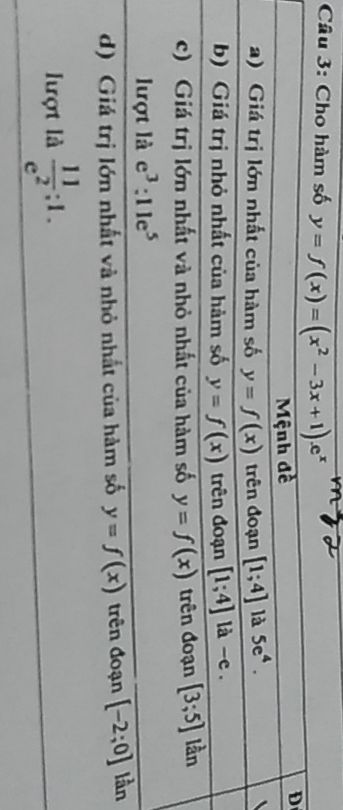 Câu 3: Cho hàm số y = f(x) = (x² − 3x + 1).eˣ
Mệnh đề
a) Giá trị lớn nhất của hàm số y = f(x) trên đoạn [1;4] là 5e⁴.
b) Giá trị nhỏ nhất của hàm số y = f(x) trên đoạn [1;4] là −e.
c) Giá trị lớn nhất và nhỏ nhất của hàm số y = f(x) trên đoạn [3;5] lần
lượt là e³;11e⁵
d) Giá trị lớn nhất và nhỏ nhất của hàm số y = f(x) trên đoạn [−2;0] lần
lượt là 11/e²;1.